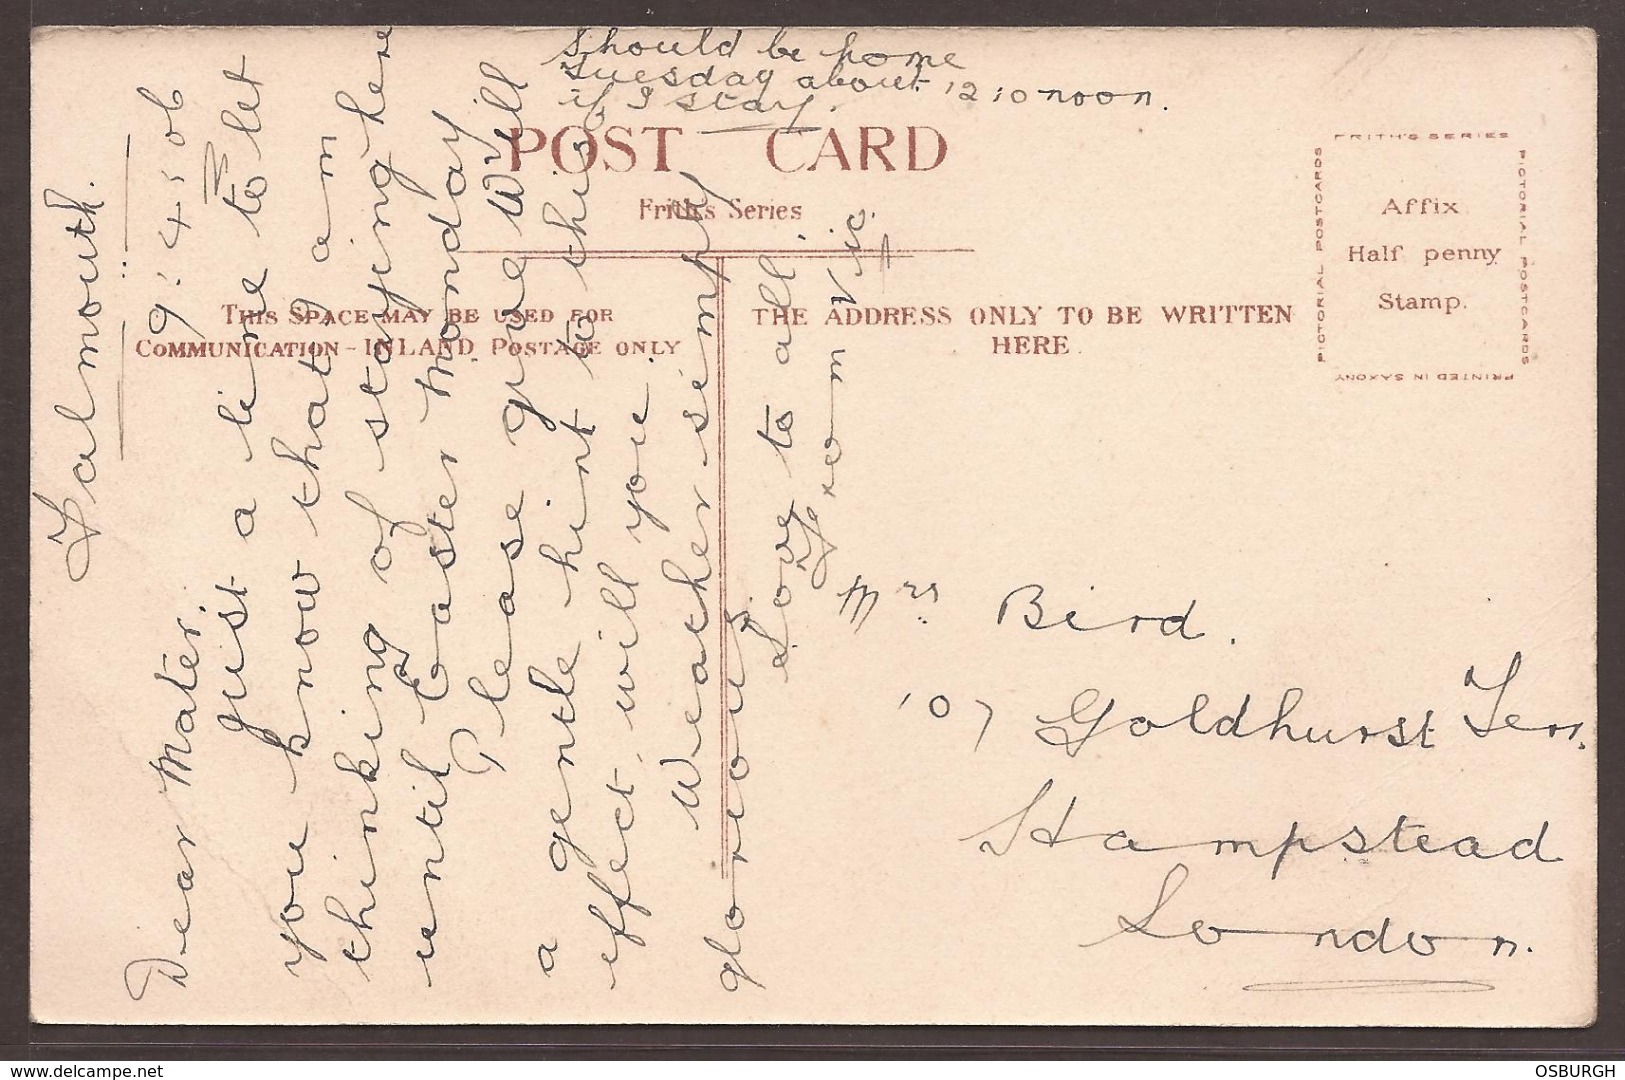 Falmouth.
9:4:06
Dear Mater.
Just a line to let
you know that I am
thinking of staying here
until Easter Monday
Please give Will
a gentle hint to this
effect, will you.
Weather simply
glorious.
Love to all.
From Vic.
Should be home
Tuesday about 12:0 noon.
if I stay.
POST CARD
Frith's Series
THIS SPACE MAY BE USED FOR
COMMUNICATION - INLAND POSTAGE ONLY
THE ADDRESS ONLY TO BE WRITTEN
HERE
FRITH'S SERIES
PICTORIAL POSTCARDS
PICTORIAL POSTCARDS
PRINTED IN SAXONY
Affix
Half penny
Stamp.
Mrs Bird.
107 Goldhurst Terr.
Hampstead
London.
delcampe.net
OSBURGH